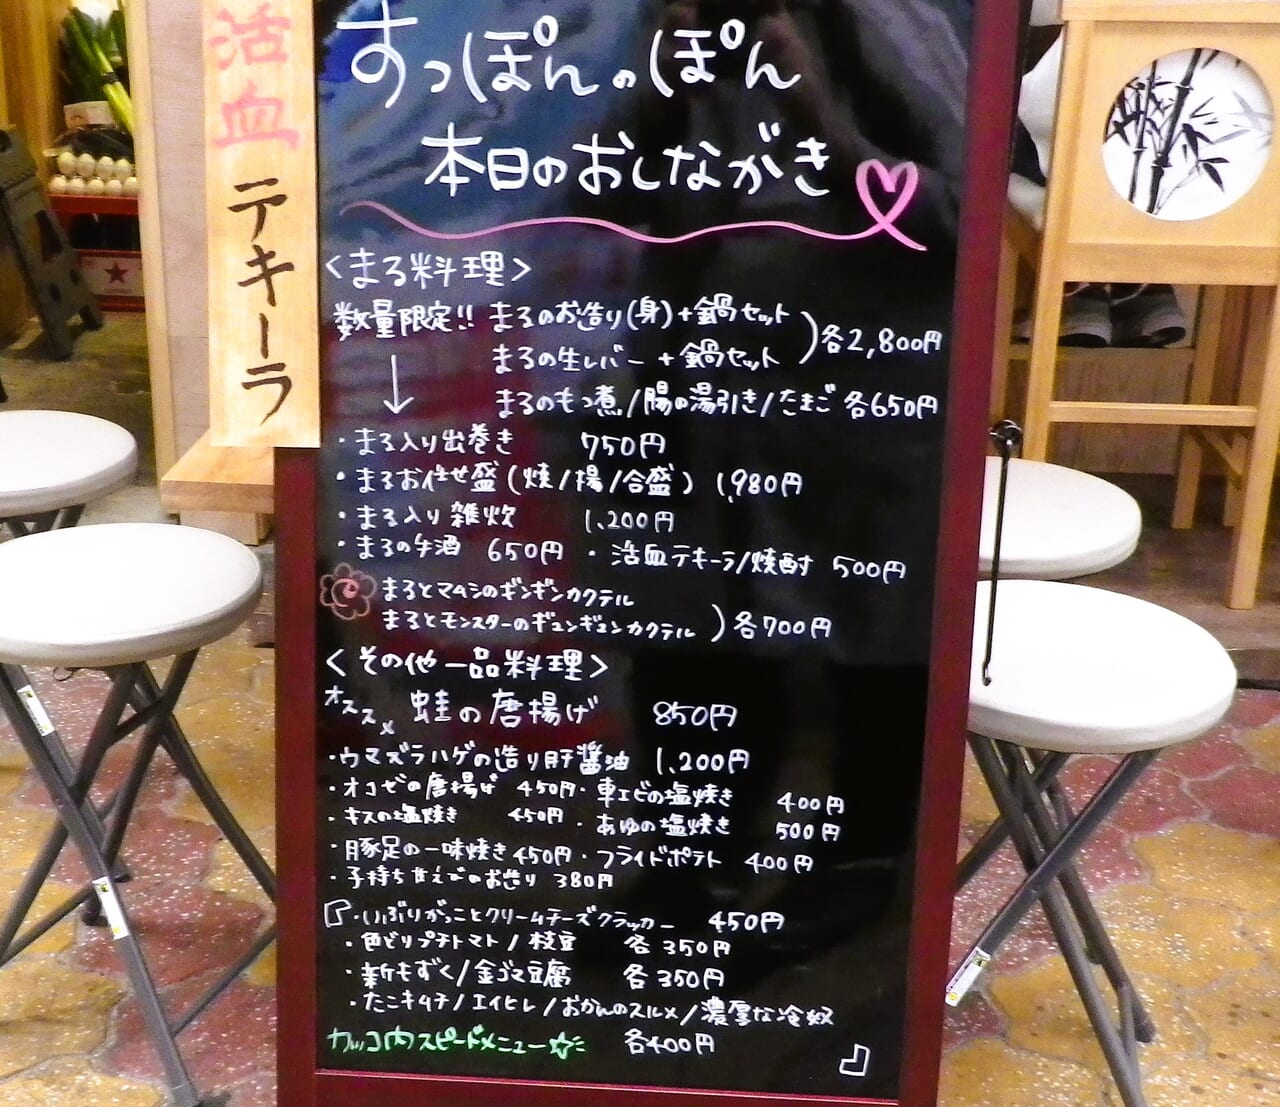 活血テキーラ
すっぽんのぽん
本日のおしながき
<まる料理>
数量限定!! まるのお造り(身)+鍋セット
まるの生レバー+鍋セット )各2,800円
まるのもつ煮/腸の湯引き/たまご 各650円
・まる入り出巻き 750円
・まるお任せ盛(焼/揚/合盛) 1,980円
・まる入り雑炊 1,200円
・まるの生酒 650円 ・活血テキーラ/焼酎 500円
まるとマムシのギンギンカクテル
まるとモンスターのギュンギュンカクテル )各700円
<その他一品料理>
オススメ 蛙の唐揚げ 850円
・ウマズラハゲの造り肝醤油 1,200円
・オコゼの唐揚げ 450円 ・車エビの塩焼き 400円
・キスの塩焼き 450円 ・あゆの塩焼き 500円
・豚足の一味焼き 450円 ・フライドポテト 400円
・子持ち甘えびのお造り 380円
「・いぶりがっことクリームチーズクラッカー 450円
・色どりプチトマト/枝豆 各350円
・新もずく/金ゴマ豆腐 各350円
・たこキムチ/エイヒレ/おかんのスルメ/濃厚な冷奴
カッコ内スピードメニュー☆ 各400円 」